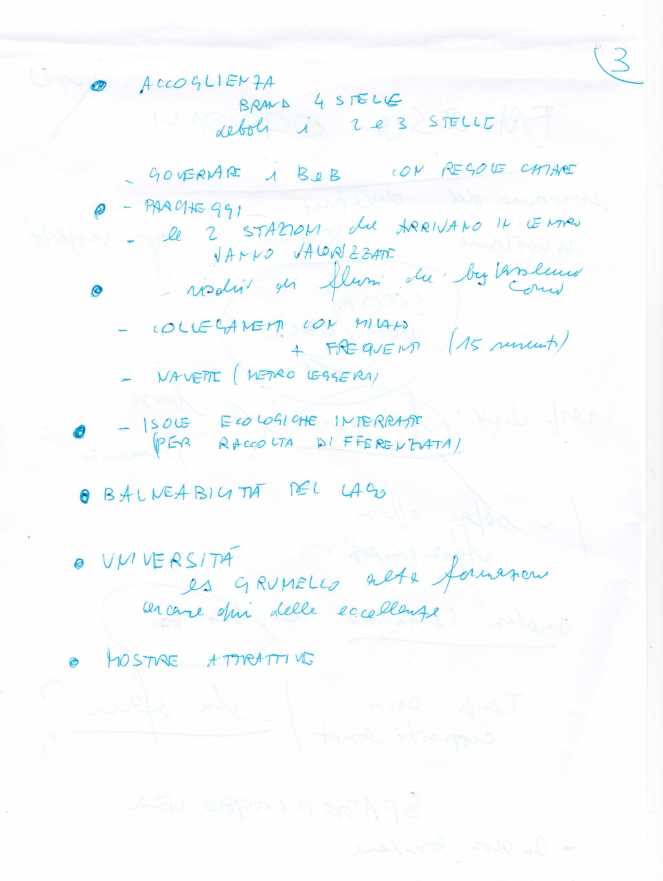 3
• ACCOGLIENZA
BRAND 4 STELLE
deboli i 2 e 3 STELLE
- GOVERNARE i B&B CON REGOLE CHIARE
• - PARCHEGGI
- le 2 STAZIONI che ARRIVANO IN CENTRO
VANNO VALORIZZATE
• - flussi che
Como
- COLLEGAMENTI CON MILANO
+ FREQUENTI (15 minuti)
- NAVETTE (METRO LEGGERA)
• - ISOLE ECOLOGICHE INTERRATE
(PER RACCOLTA DIFFERENZIATA)
• BALNEABILITÀ DEL LAGO
• UNIVERSITÀ
es GRUMELLO alta formazione
cercare delle eccellenze
• MOSTRE ATTRATTIVE